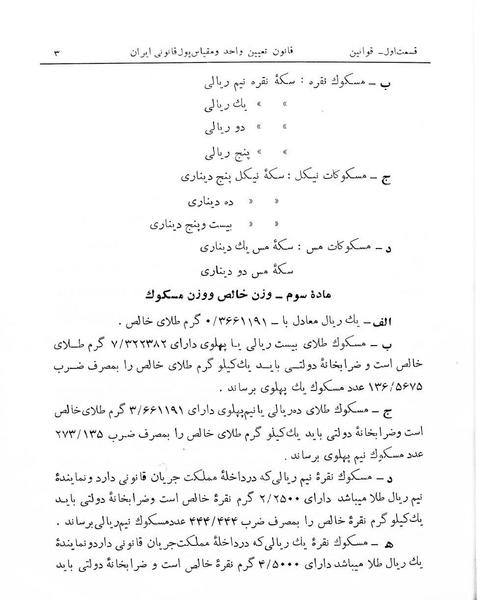 قسمت اول ـ قوانین قانون تعیین واحد و مقیاس پول قانونی ایران ۳
ب ـ مسکوک نقره : سکهٔ نقره نیم ریالی
» » یك ریالی
» » دو ریالی
» » پنج ریالی
ج ـ مسکوکات نیکل : سکهٔ نیکل پنج دیناری
» » ده دیناری
» » بیست و پنج دیناری
د ـ مسکوکات مس : سکهٔ مس یك دیناری
سکهٔ مس دو دیناری
مادهٔ سوم ـ وزن خالص ووزن مسکوك
الف ـ یك ریال معادل با ـ ۰/۳۶۶۱۱۹۱ گرم طلای خالص .
ب ـ مسکوك طلای بیست ریالی یـا پهلوی دارای ۷/۳۲۲۳۸۲ گرم طلـای
خالص است و ضرابخانهٔ دولتـی بایـد یك‌کیلو گرم طلای خالص را بمصرف ضـرب
۱۳۶/۵۶۷۵ عدد مسکوك یك پهلوی برساند .
ج ـ مسکوك طلای ده‌ریالی یانیم‌پهلوی دارای ۳/۶۶۱۱۹۱ گرم طلای‌خالص
است وضرابخانهٔ دولتی باید یك‌کیلو گرم طلای خالص را بمصرف ضرب ۲۷۳/۱۳۵
عدد مسکوك نیم پهلوی برساند .
د ـ مسکوك نقرهٔ نیم ریالی‌که درداخلهٔ مملکت جریان قانونی دارد ونمایندهٔ
نیم ریال طلا میباشد دارای ۲/۲۵۰۰ گرم نقرهٔ خالص است وضرابخانهٔ دولتی بایـد
یك‌کیلو گرم نقرهٔ خالص را بمصرف ضرب ۴۴۴/۴۴۴ عددمسکوك نیم‌ریالی برساند .
ه ـ مسکوك نقرهٔ یك ریالی‌که درداخلهٔ مملکت‌جریان قانونی داردونمایندهٔ
یك ریال طلا میباشد دارای ۴/۵۰۰۰ گرم نقرهٔ خالص است و ضرابخانهٔ دولتی باید